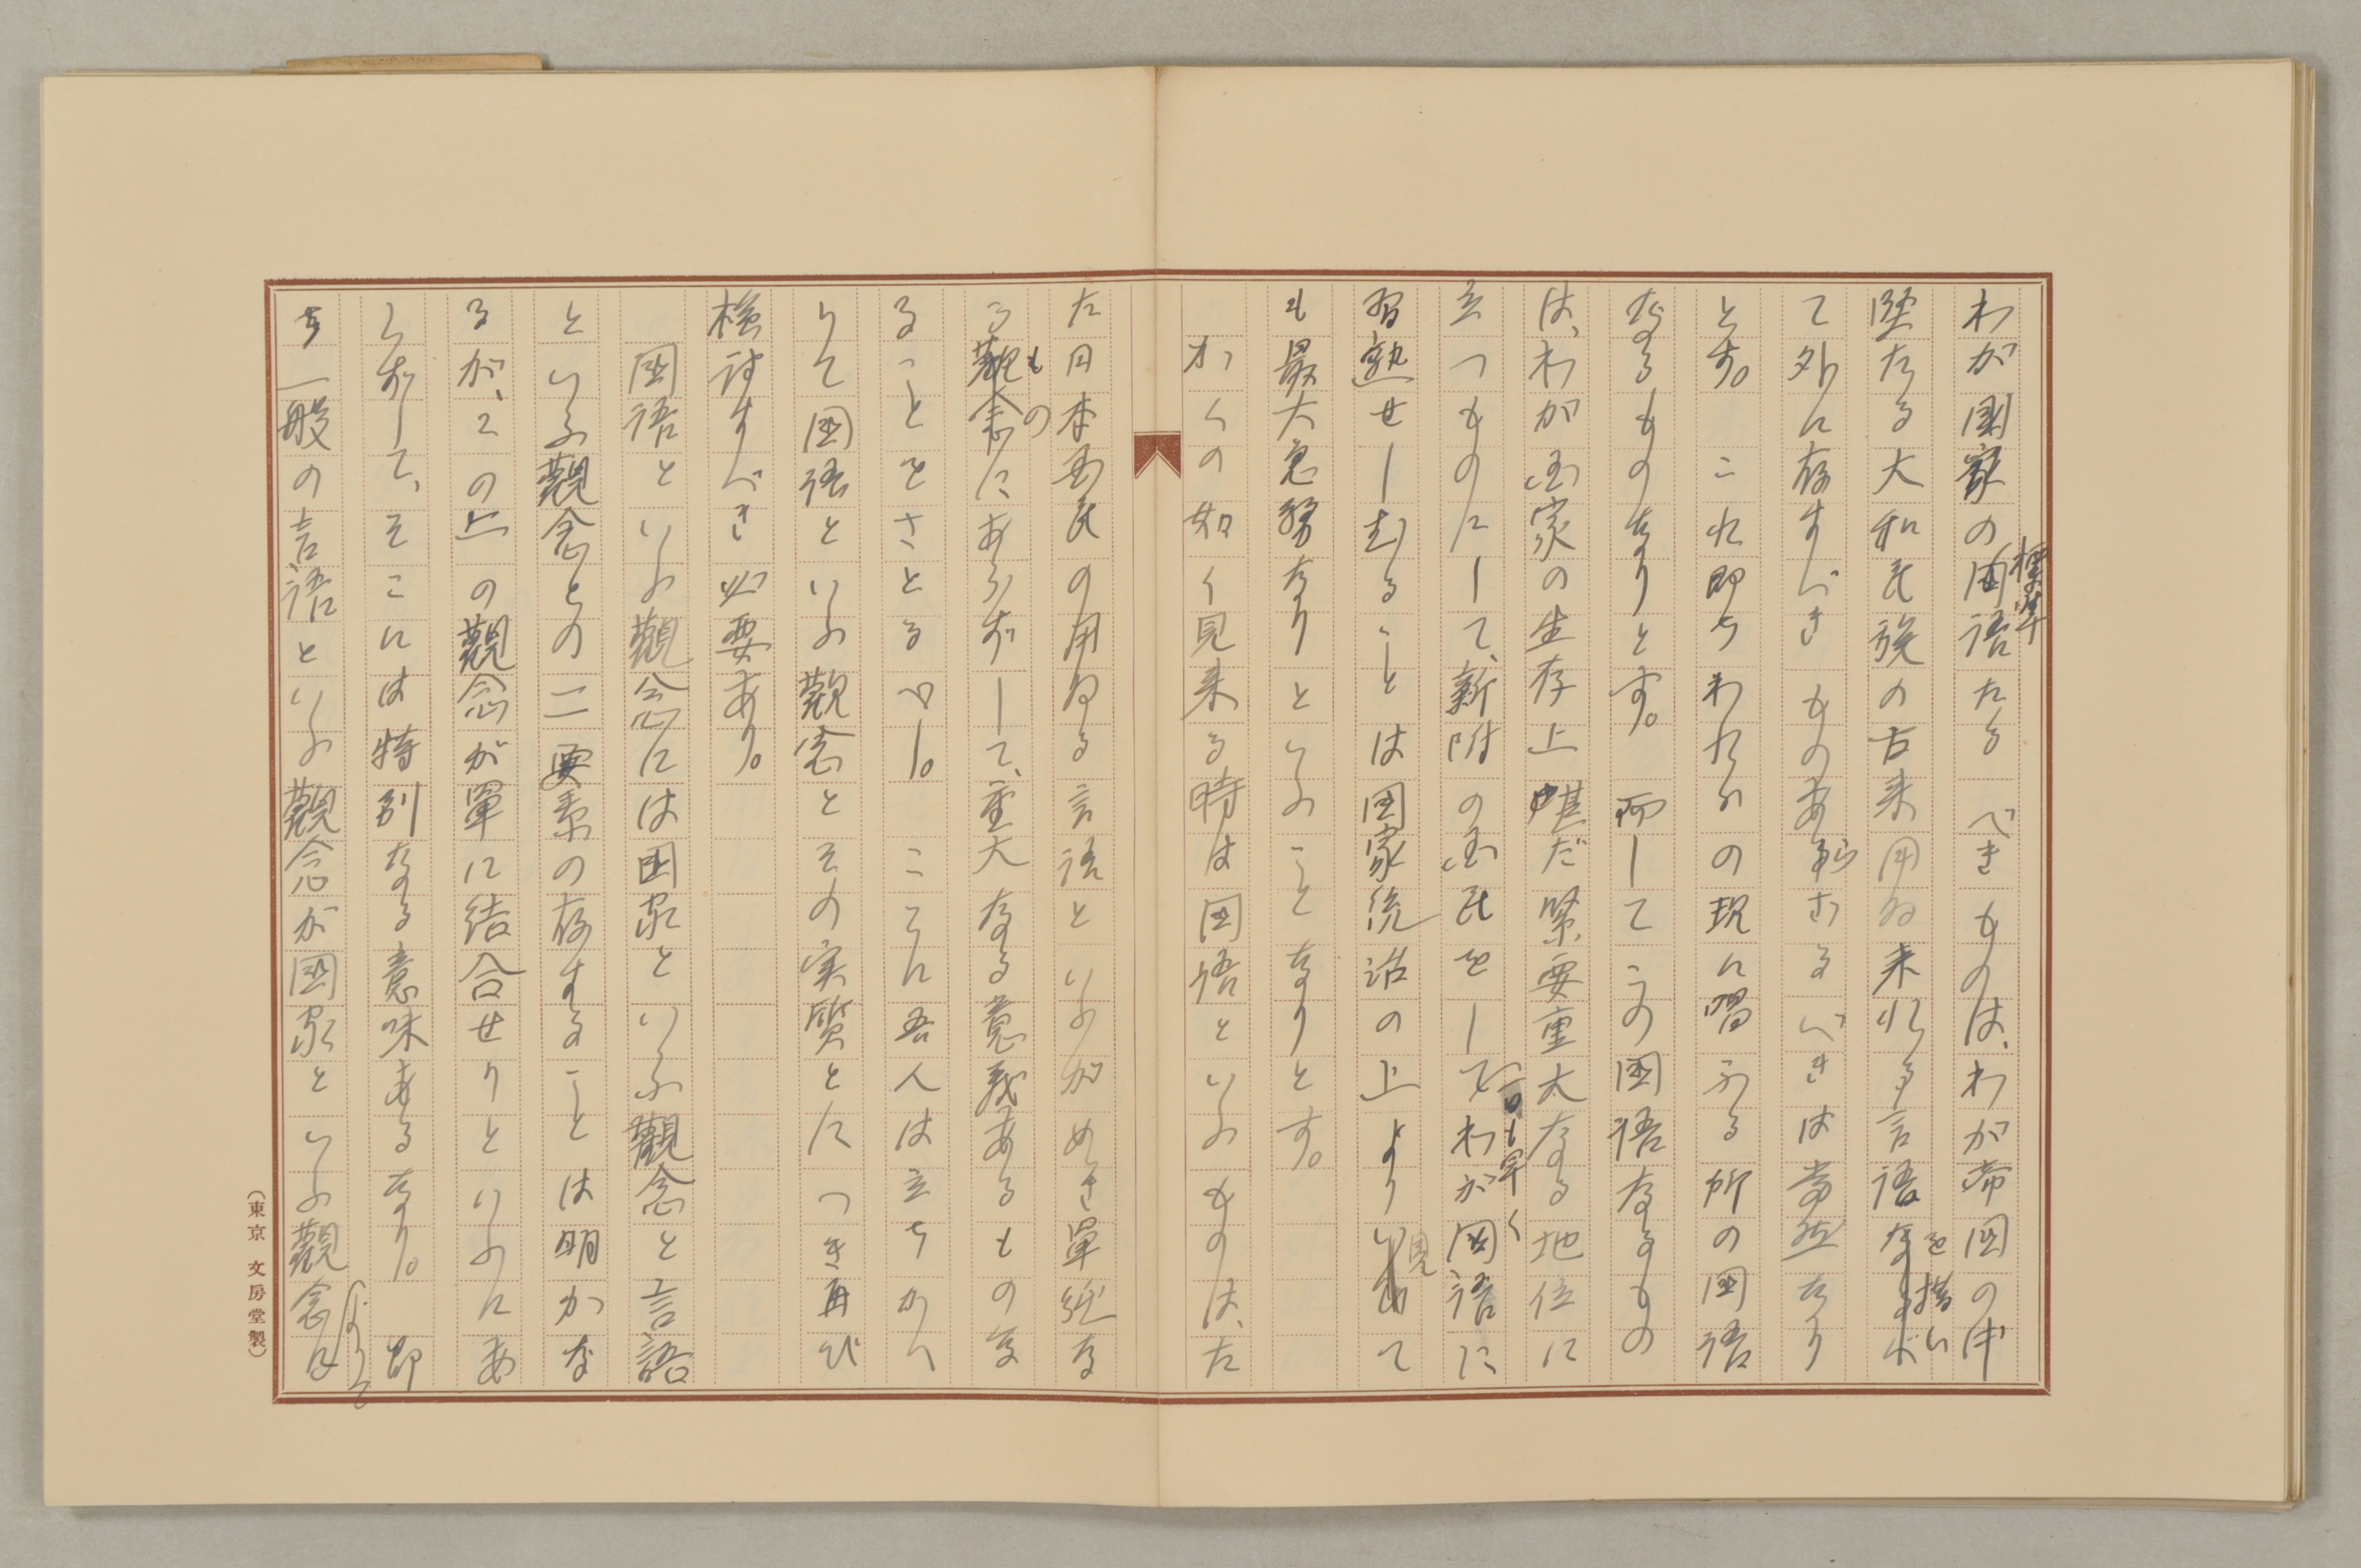 わが国家の標準国語たるべきものは、わが帝国の中
堅たる大和民族の古来用ゐ来れる言語を措い
て外に存すべきものあらざるべきは当然たり
とす。これ即ちわれらの現に唱ふる所の国語
なるものなりとす。而してこの国語なるもの
は、わが国家の生存上甚だ緊要重大なる地位に
立つものにして、新附の国民をして一日も早くわが国語に
習熟せしむることは国家統治の上より見て
も最大急務なりといふことなりとす。
かくの如く見来る時は国語といふものは、た
た日本国民の用ゐる言語といふがめき単純な
るものにあらずして、重大なる意義あるものな
ることをさとるべし。こゝに吾人は立ちかへ
りて国語といふ観念とその実質とにつき再び
検討すべき必要あり。
国語といふ観念には国家といふ観念と言語
といふ観念との二要素の存することは明かな
るが、この上の観念が単に結合せりといふにあ
らずして、そこには特別なる意味あるなり。即
ち一般の言語といふ観念が国家といふ観念に
よりて
（東京 文房堂製）